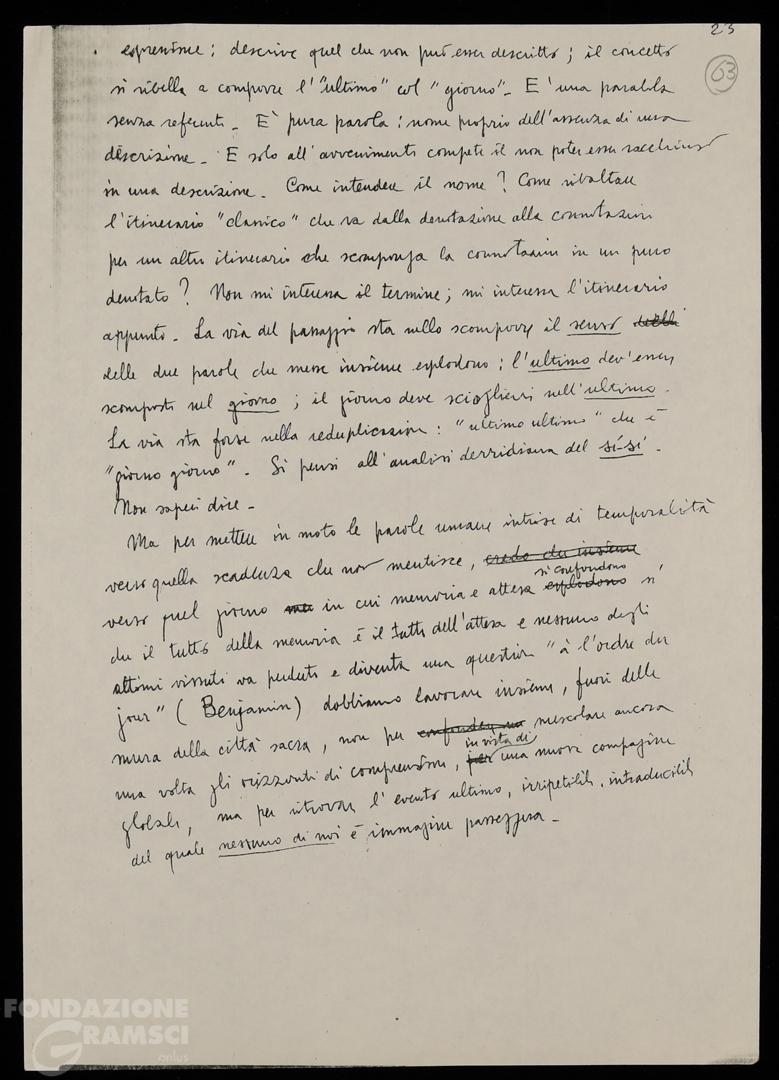 23
63
espressione; descrive quel che non può esser descritto; il concetto
si ribella a comporre l'"ultimo" col "giorno". E' una parabola
senza referente. E' pura parola: nome proprio dell'assenza di una
descrizione. E solo all'avvenimento compete il non poter esser racchiuso
in una descrizione. Come intendere il nome? Come ribaltare
l'itinerario "classico" che va dalla denotazione alla connotazione
per un altro itinerario che scomponga la connotazione in un puro
denotato? Non mi interessa il termine; mi interessa l'itinerario
appunto. La via del passaggio sta nello scomporre il senso delle
delle due parole che messe insieme esplodono: l'ultimo dev'esser
scomposto nel giorno; il giorno deve sciogliersi nell'ultimo.
La via sta forse nella reduplicazione: "ultimo ultimo" che è
"giorno giorno". Si pensi all'analisi derridiana del sì-sì.
Non saprei dire.
Ma per mettere in moto le parole umane intrise di temporalità
verso quella scadenza che non mentisce, credo che insieme
verso quel giorno in cui memoria e attesa esplodono si confondono sì
che il tutto della memoria è il tutto dell'attesa e nessuno degli
attimi vissuti va perduto e diventa una question "à l'ordre du
jour" (Benjamin) dobbiamo lavorare insieme, fuori delle
mura della città sacra, non per mescolare ancora
una volta gli orizzonti di comprensione, per in vista di una nuova compagine
globale, ma per ritrovare l'evento ultimo, irripetibile, intraducibile
del quale nessuno di noi è immagine passeggera.
FONDAZIONE
GRAMSCI
onlus